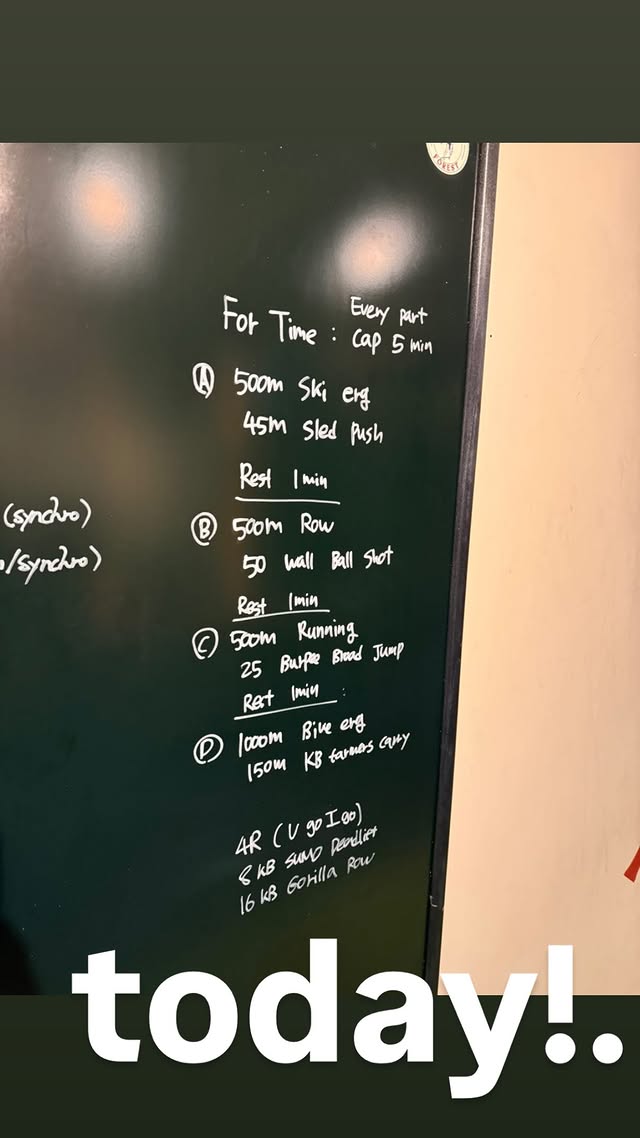 FOREST
For Time : Every part
Cap 5 min
Ⓐ 500m Ski erg
45m Sled Push
Rest 1min
(synchro)
Ⓑ 500m Row
o/synchro)
50 Wall Ball Shot
Rest 1min
Ⓒ 500m Running
25 Burpee Broad Jump
Rest 1min :
Ⓓ 1000m Bike erg
150m KB farmers carry
4R (U go I go)
8 KB SUMO Deadlift
16 KB Gorilla Row
today!.